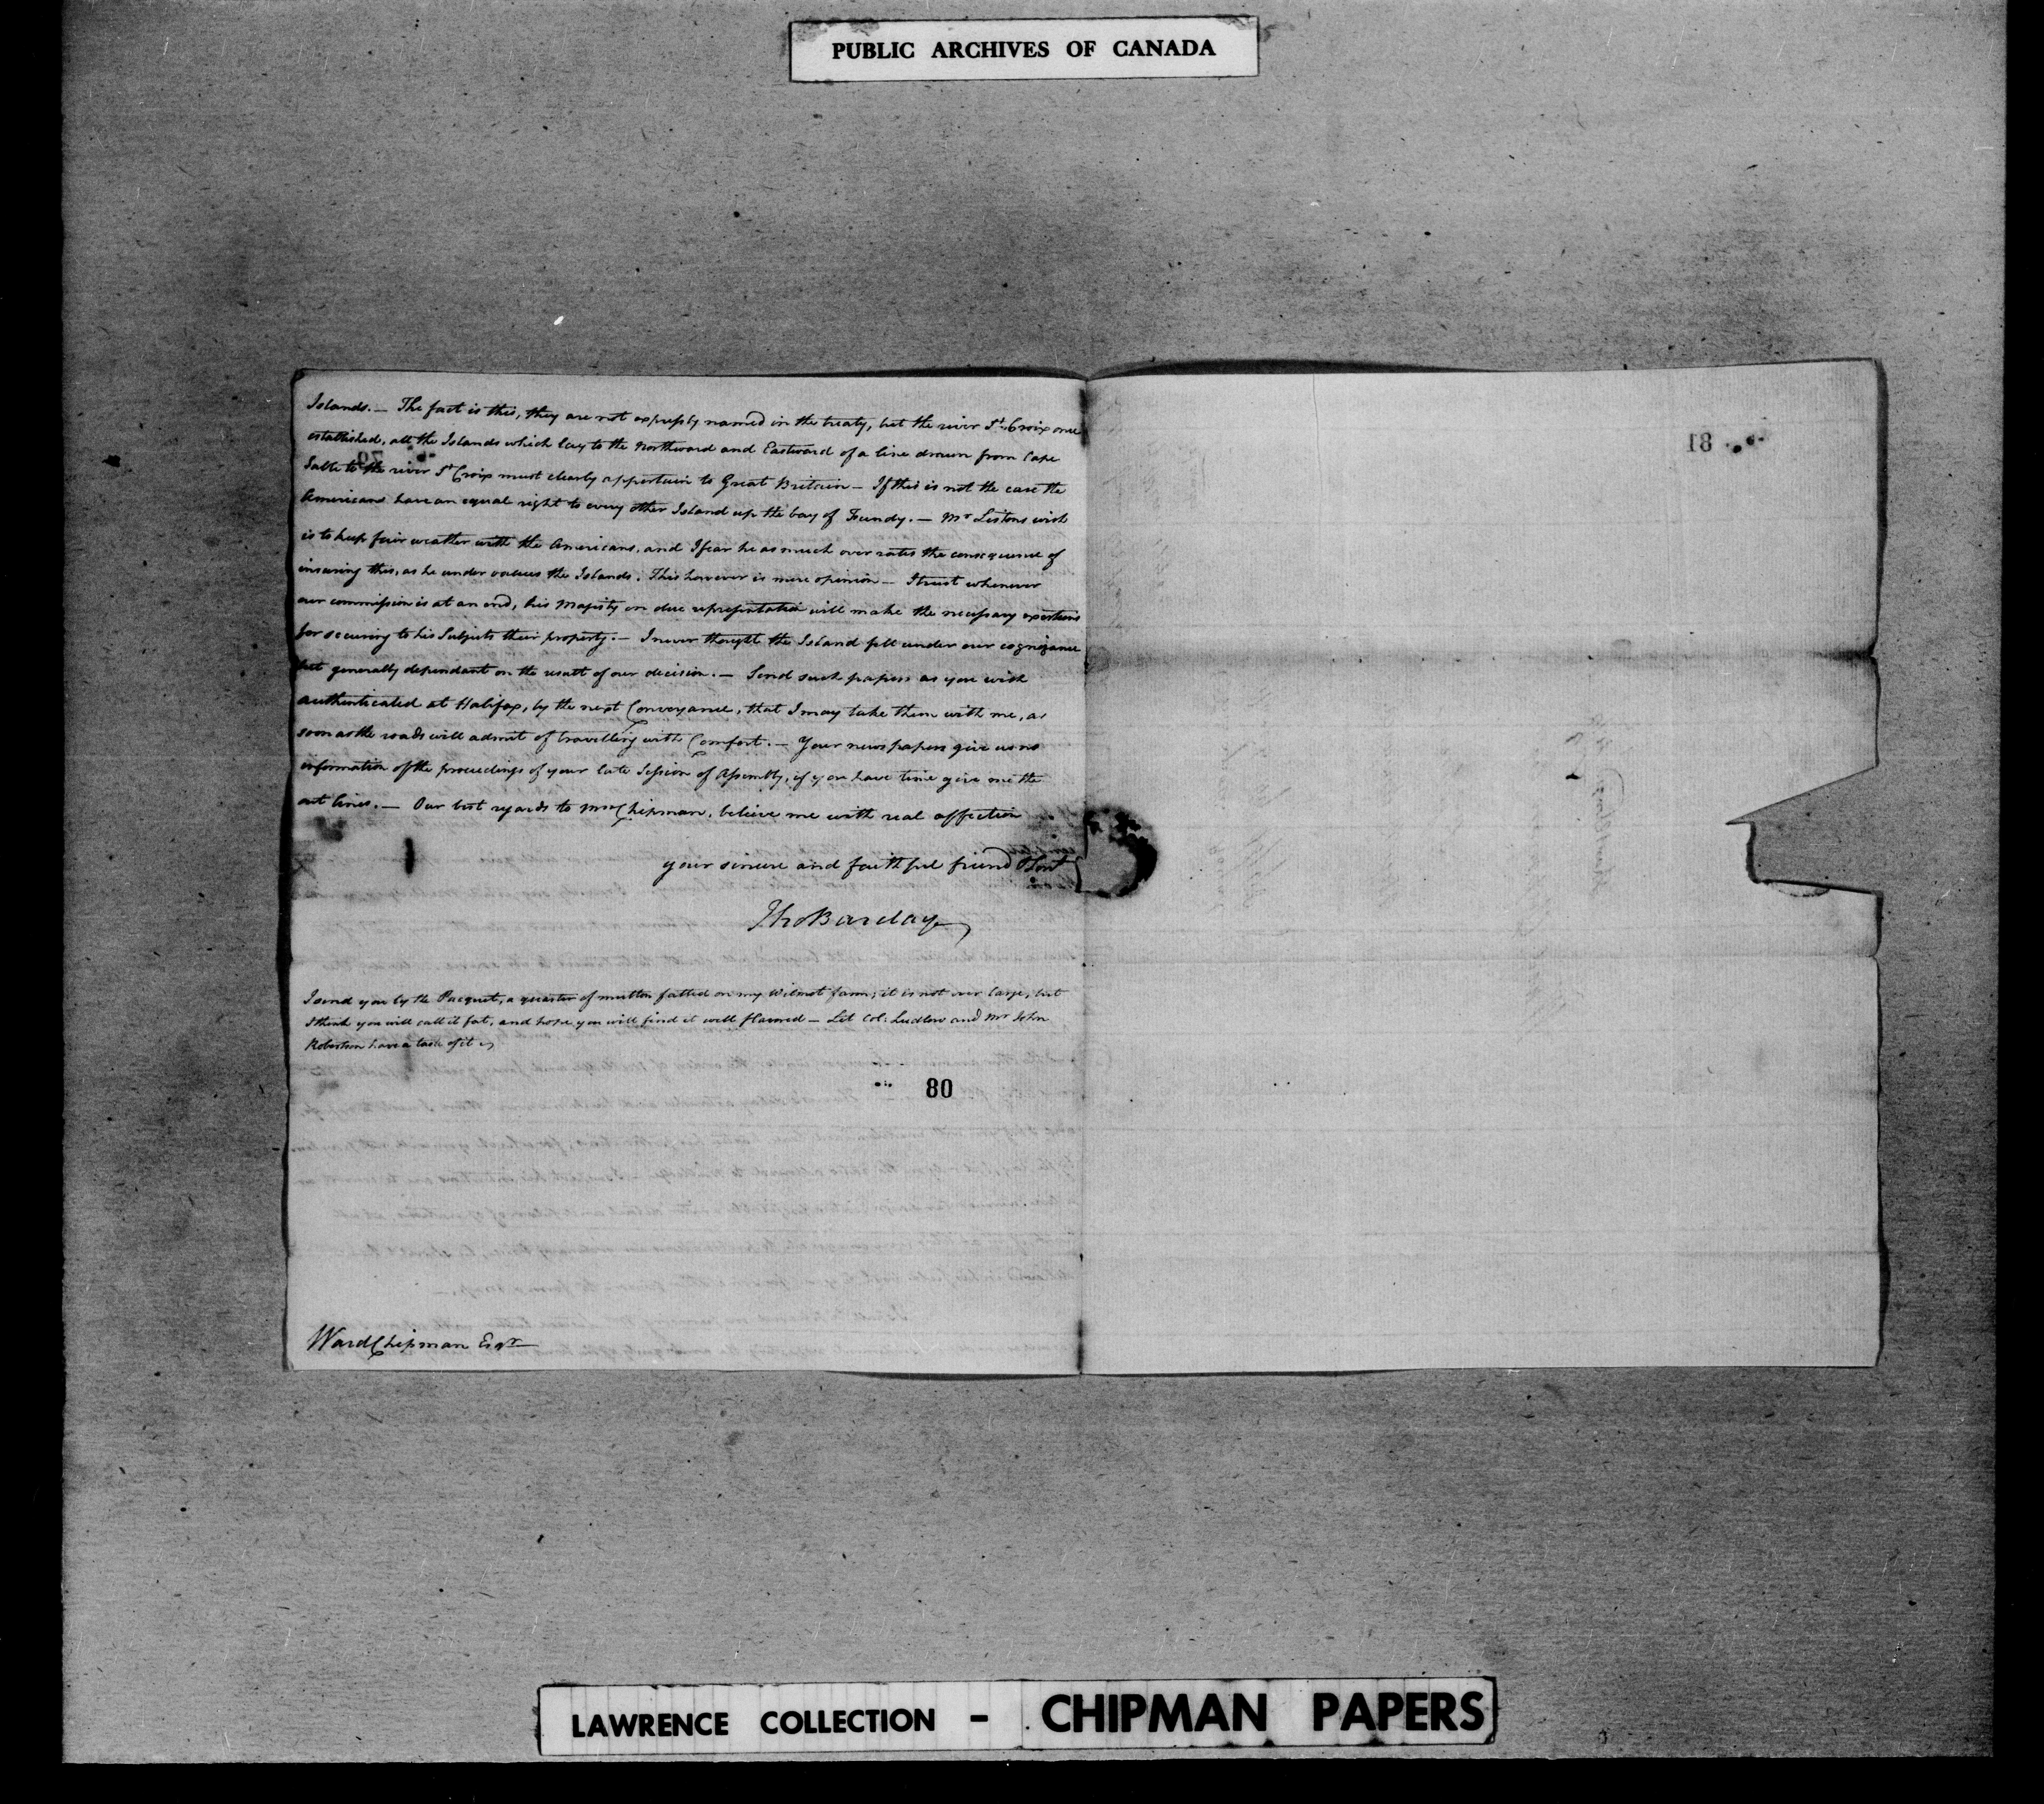 PUBLIC ARCHIVES OF CANADA
Islands. — The fact is this, they are not expressly named in the treaty, but the river St. Croix once
established, all the Islands which lay to the Northward and Eastward of a line drawn from Cape
Sable to the river St Croix must clearly appertain to Great Britain — If this is not the case the
Americans have an equal right to every other Island up the bay of Fundy. — Mr Listons wish
is to keep fair weather with the Americans, and I fear he as much over rates the consequence of
insuring this, as he under values the Islands. This however is mere opinion — I trust whenever
our commission is at an end, his Majesty on due representation will make the necessary exertions
for securing to his Subjects their property. — I never thought the Island fell under our cognizance
but generally dependant on the result of our decision. — Send such papers as you wish
authenticated at Halifax, by the next Conveyance, that I may take them with me, as
soon as the roads will admit of travelling with Comfort. — Your news papers give us no
information of the proceedings of your late Session of Assembly, if you have time give me the
out lines. — Our best regards to Mrs Chipman, believe me with real affection
your sincere and faithful friend & Servt
Tho Barclay
I send you by the Pacquet, a quarter of mutton fatted on my Wilmot farm; it is not over large, but
I think you will call it fat, and hope you will find it well flavored — Let Col: Ludlow and Mr John
Robertson have a taste of it
80
Ward Chipman Esqr
81
79
LAWRENCE COLLECTION - CHIPMAN PAPERS